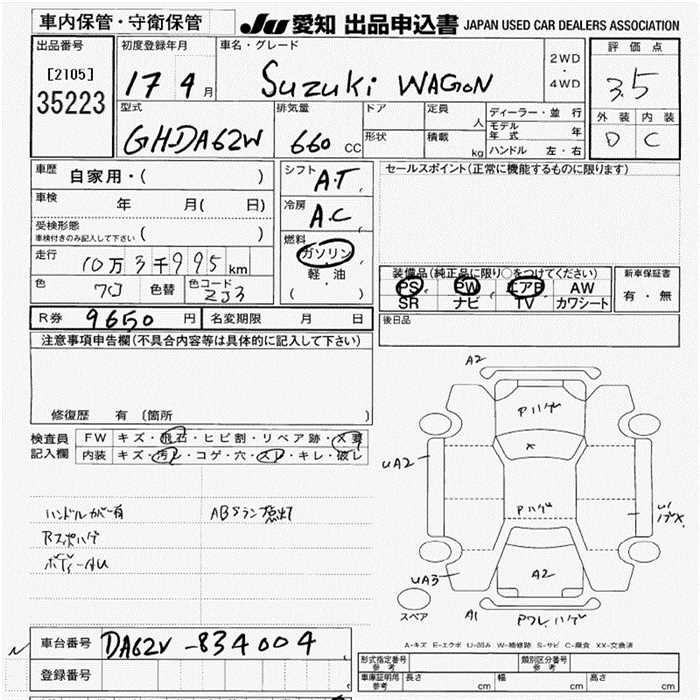 車内保管・守衛保管
JU 愛知 出品申込書 JAPAN USED CAR DEALERS ASSOCIATION
出品番号
[2105]
35223
初度登録年月
17 4月
車名・グレード
Suzuki WAGON
2WD
・
4WD
評価点
3.5
外装 内装
D C
型式
GH-DA62W
排気量
660 CC
ドア
形状
定員 人
積載 kg
ディーラー・並行
モデル年式 年
ハンドル 左・右
車歴
自家用・( )
車検 年 月( 日)
受検形態
車検付きのみ記入して下さい ( )
走行 10万3千995km
色 色替 色コード ZJ3
シフト
A.T
冷房
A.C
燃料
ガソリン
・
軽油
( )
セールスポイント(正常に機能するものに限ります)
装備品(純正品に限り○をつけてください)
PS PW エアB AW
SR ナビ TV カワシート
新車保証書
有・無
後日品
R券 9650円 名変期限 月 日
注意事項申告欄(不具合内容等は具体的に記入して下さい)
修復歴 有〔箇所 〕
検査員記入欄
FW キズ・飛石・ヒビ割・リペア跡・X要
内装 キズ・汚レ・コゲ・穴・スレ・キレ・破レ
ABSランプ点灯
A2
Pハゲ
X
UA2
Pハゲ
A2
UA3
スペア
A1
A-キズ E-エクボ U-凹み W-補修跡 S-サビ C-腐食 XX-交換済
車台番号 DA62V-834004
登録番号
形式指定番号 参考
類別区分番号 参考
車庫証明用 参考 長さ cm 幅 cm 高さ cm